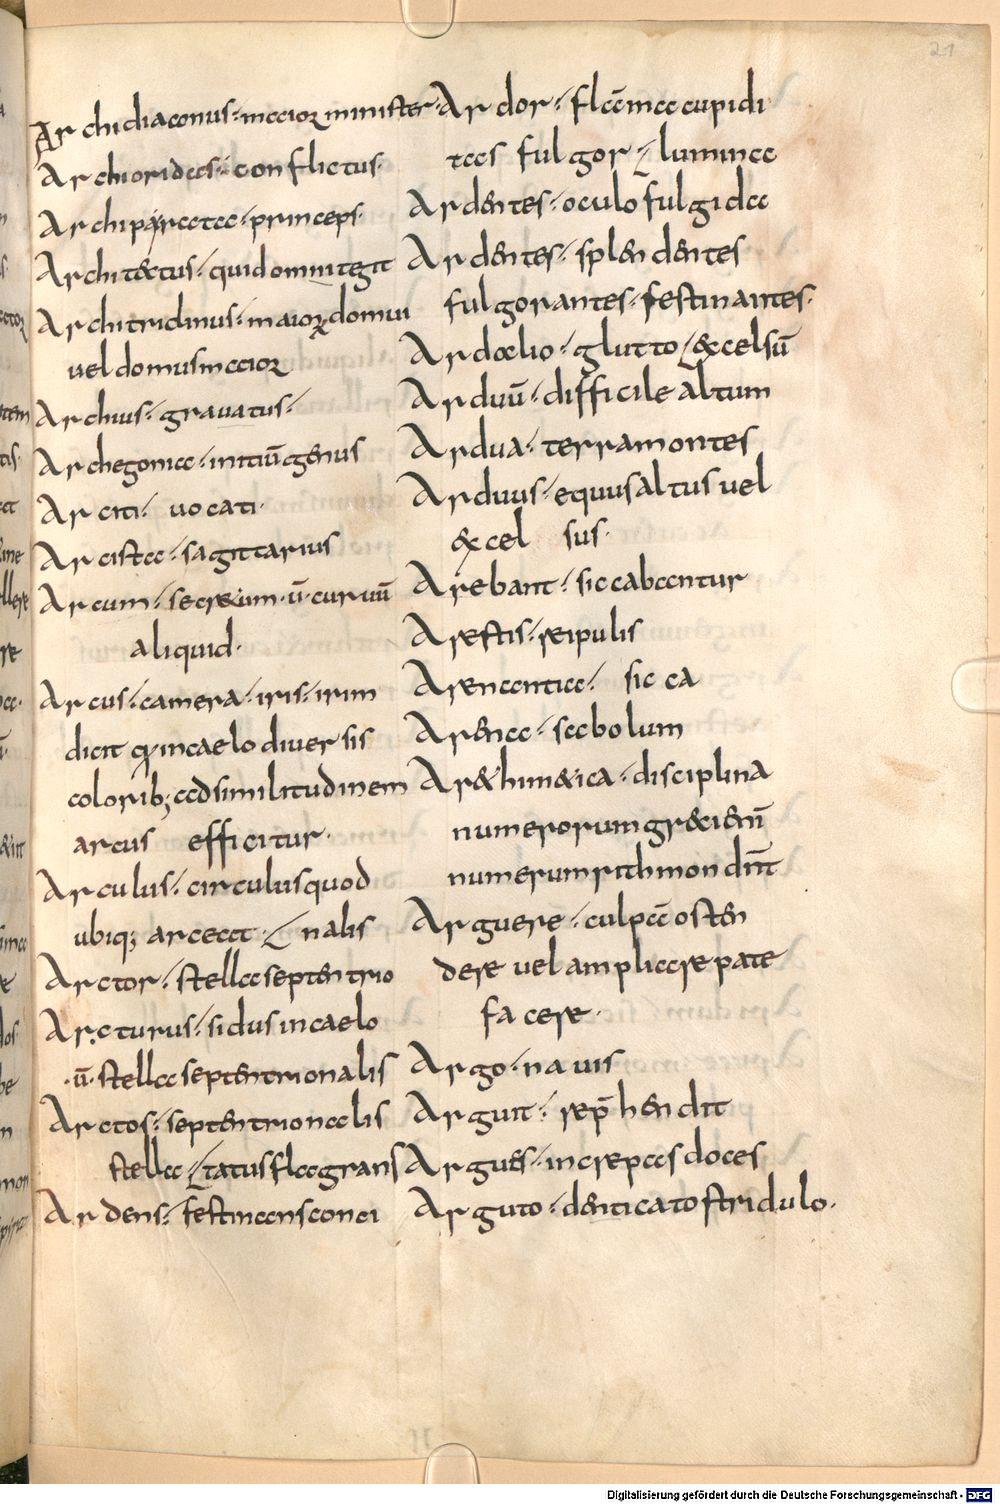 21
Archidiaconus · maior minister ·
Archiorides · conflictus ·
Archiparata · princeps ·
Archit&tus · quid omni tegit
Architridinus · maior domui
uel domus maior
Archius · grauatus ·
Archegonia · initiū &genus
Arciti · uocati ·
Arcista · sagittarius
Arcum · secr&um · ū · curuū
aliquid ·
Arcus · camera · iris · irim
dicit q in caelo diuersis
colorib; ad similitudinem
arcus efficitur ·
Arculus · circulus quod
ubiq; arceat · nalis
Arctor · stella septentrio
Arcturus · sidus in caelo
· ū · stella septentrionalis
Arctos · septentrionalis
stella tatus flagrans
Ardens · festinans conci
Ardor · flāma cupidi
tas fulgor lumina
Ardentes · oculo fulgida
Ardentes · splendentes
fulgorantes · festinantes ·
Ardælio · glutto &celsū
Arduū · difficile altum
Ardua · terra montes
Arduus · equus altus uel
&celsus ·
Arebant · siccabantur
Arestis · reipulis
Arenantia · sicca
Arena · sabolum
Ar&him&ica · disciplina
numerorum gr&ci enī
numerum rithmon dnt
Arguere · culpā osten
dere uel ampliare pate
facere ·
Argo · nauis
Arguit · rep̄hendit
Argues · increpas doces
Arguto · denticato stridulo ·
Digitalisierung gefördert durch die Deutsche Forschungsgemeinschaft - DFG